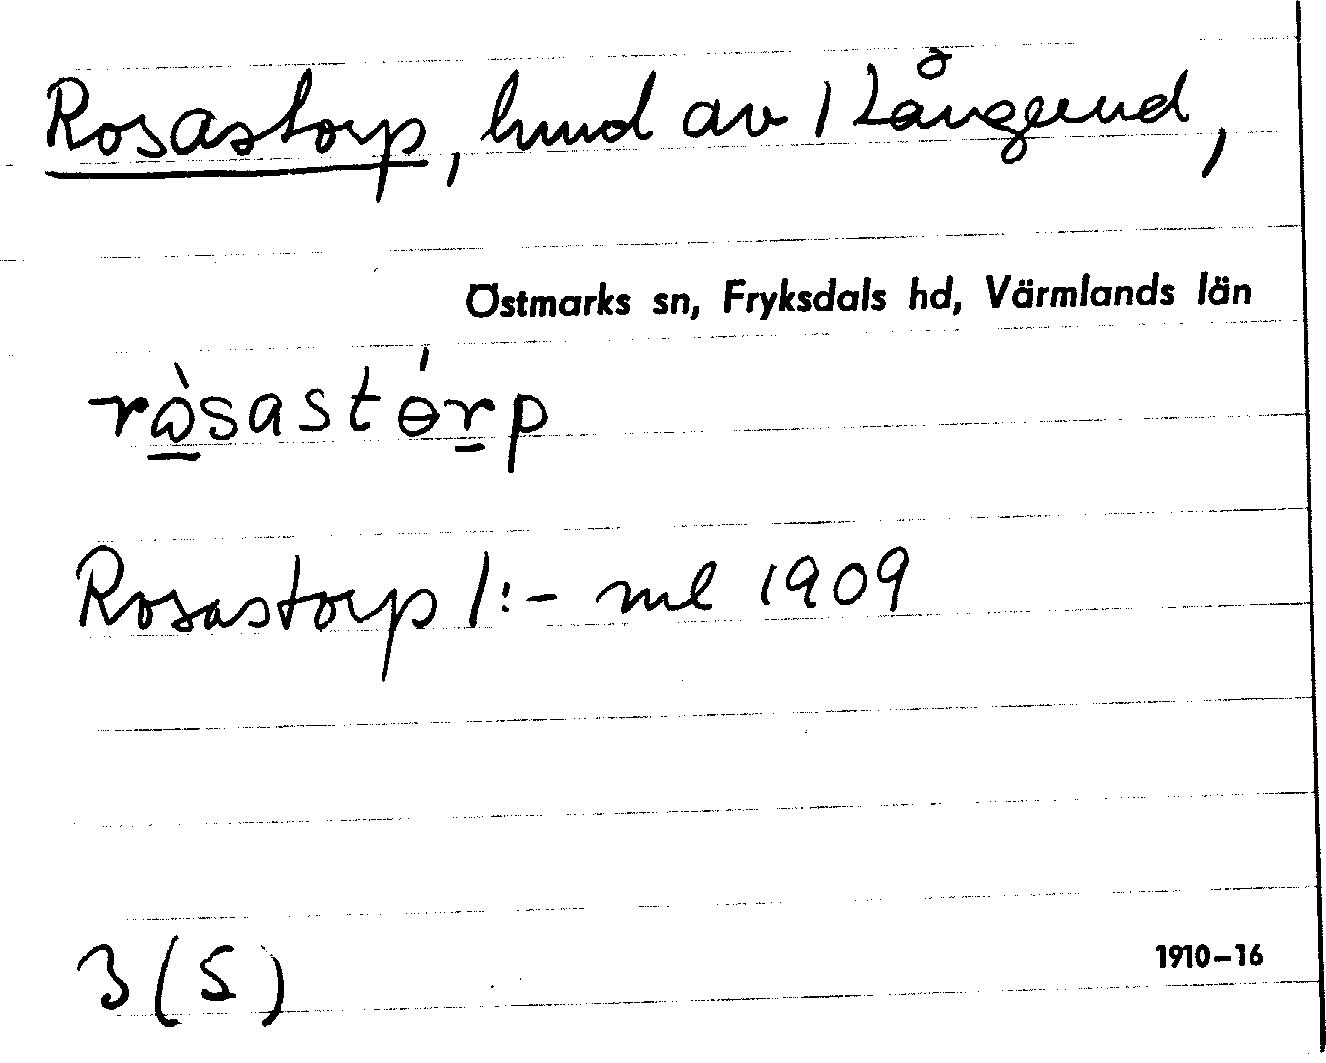 Rosastorp, hmd av 1 Långerud,
Östmarks sn, Fryksdals hd, Värmlands län
ròsastɵ́rp
Rosastorp /:- ml 1909
3 (S)
1910–16